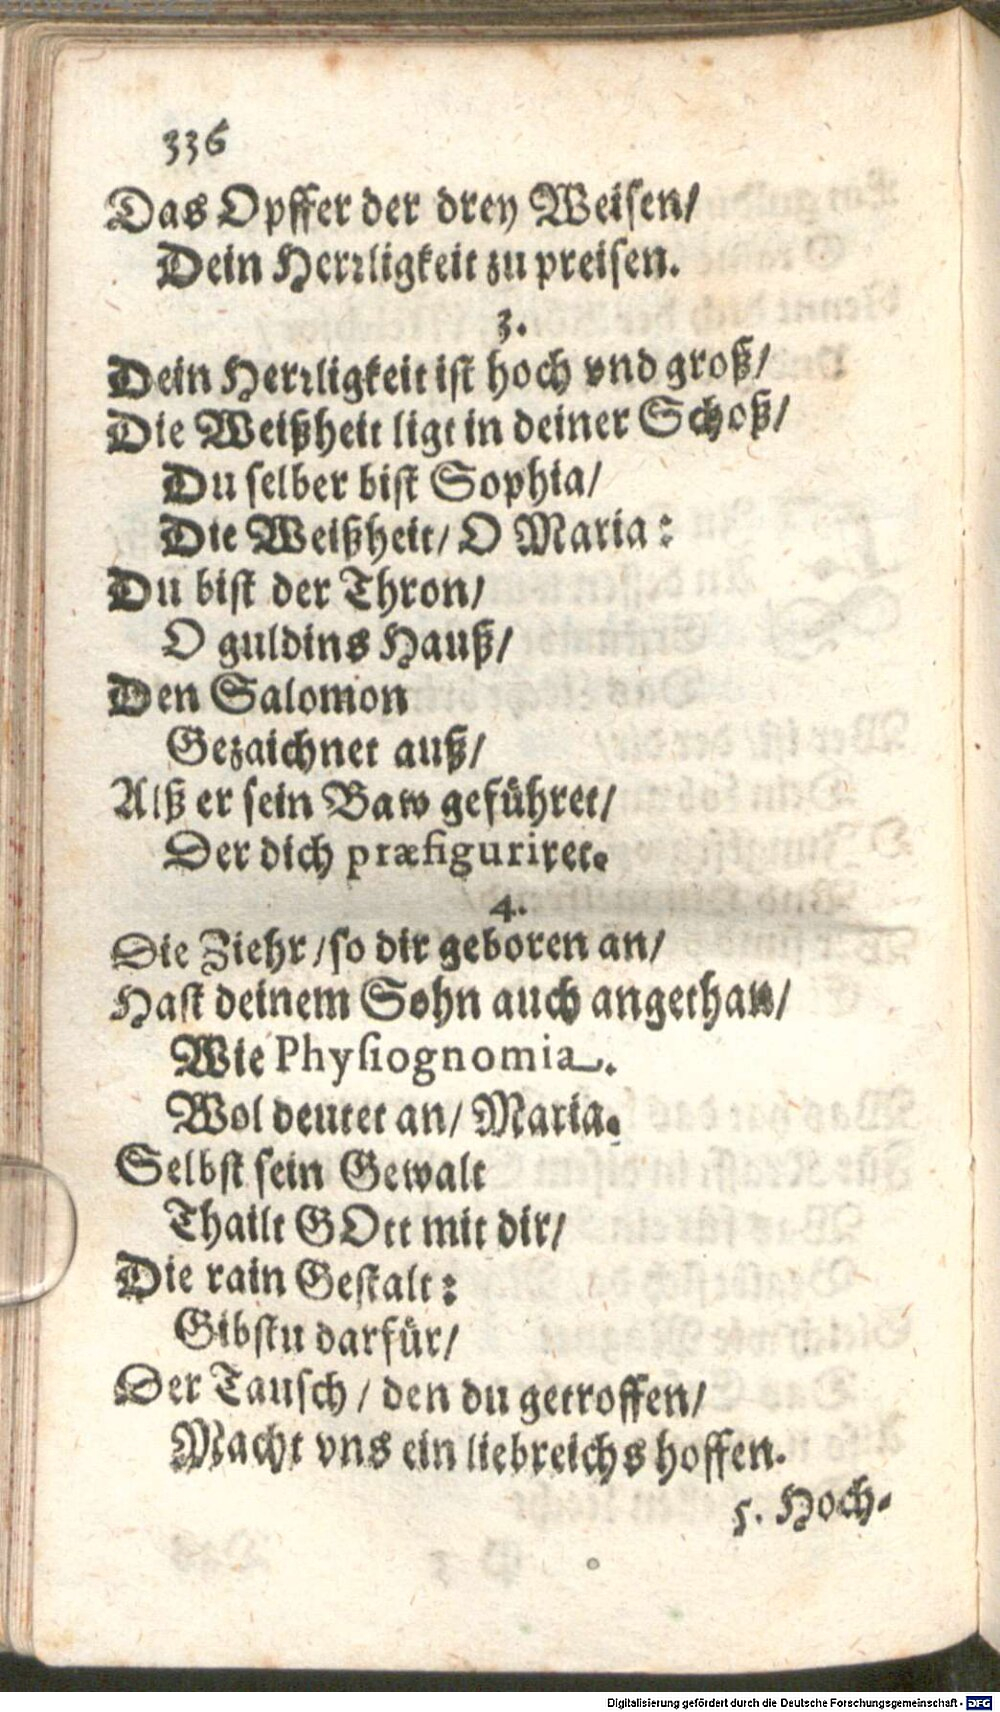 336
Das Opffer der drey Weisen/
Dein Herrligkeit zu preisen.
3.
Dein Herrligkeit ist hoch vnd groß/
Die Weißheit ligt in deiner Schoß/
Du selber bist Sophia/
Die Weißheit/ O Maria:
Du bist der Thron/
O guldins Hauß/
Den Salomon
Gezaichnet auß/
Alß er sein Baw geführet/
Der dich præfiguriret.
4.
Die Ziehr/ so dir geboren an/
Hast deinem Sohn auch angethan/
Wie Physiognomia.
Wol deutet an/ Maria.
Selbst sein Gewalt
Thailt GOtt mit dir/
Die rain Gestalt:
Gibstu darfür/
Der Tausch/ den du getroffen/
Macht vns ein liebreichs hoffen.
5. Hoch-
Digitalisierung gefördert durch die Deutsche Forschungsgemeinschaft - DFG